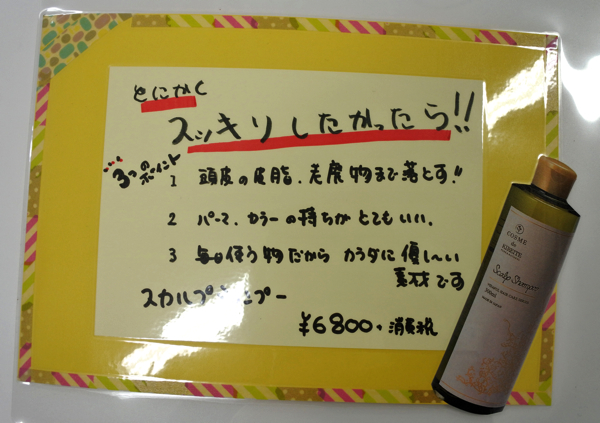 とにかく
スッキリしたかったら!!
3つのポイント
1 頭皮の皮脂、老廃物まで落とす!!
2 パーマ、カラーの持ちがとてもいい。
3 毎日使う物だからカラダに優し〜い
素材です
スカルプ
プー
¥6800+消費税
COSME
de
KIREIE
Scalp Shampoo